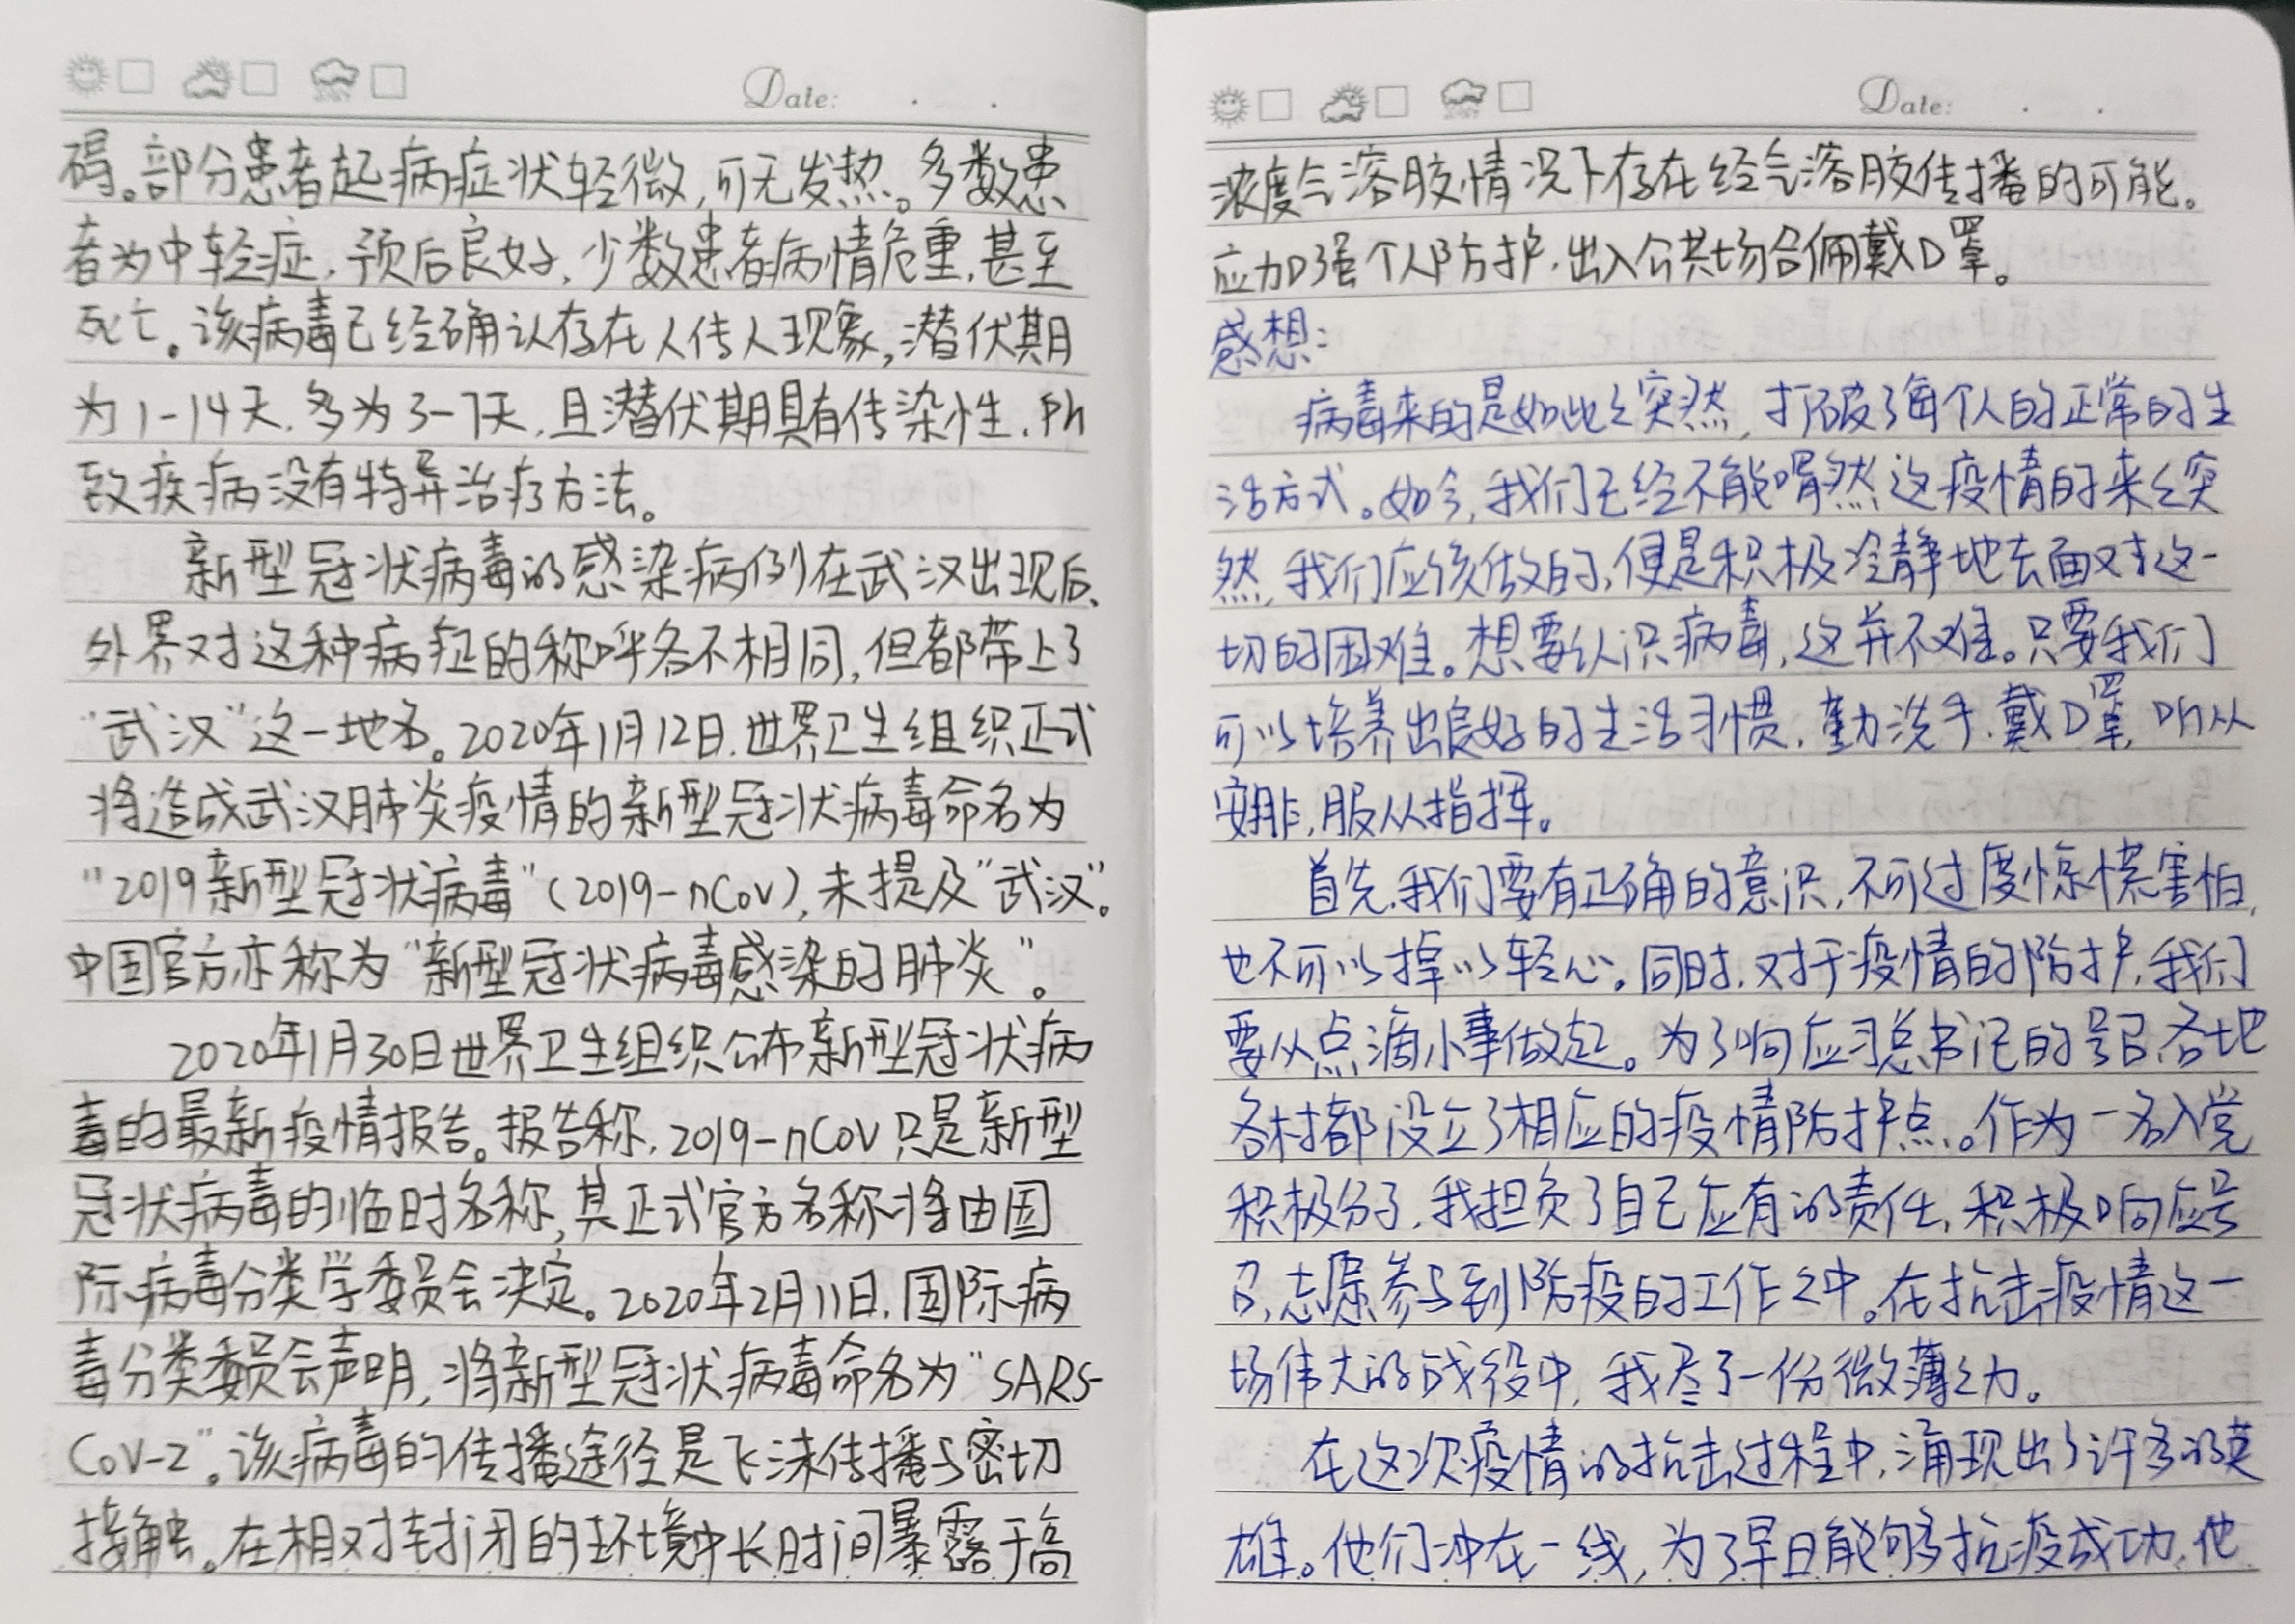 Date:
碍。部分患者起病症状轻微,可无发热。多数患
者为中轻症,预后良好,少数患者病情危重,甚至
死亡。该病毒已经确认存在人传人现象,潜伏期
为1-14天,多为3-7天,且潜伏期具有传染性,所
致疾病没有特异治疗方法。
新型冠状病毒的感染病例在武汉出现后,
外界对这种病症的称呼各不相同,但都带上了
“武汉”这一地名。2020年1月12日,世界卫生组织正式
将造成武汉肺炎疫情的新型冠状病毒命名为
“2019新型冠状病毒”(2019-nCoV),未提及“武汉”。
中国官方亦称为“新型冠状病毒感染的肺炎”。
2020年1月30日世界卫生组织公布新型冠状病
毒的最新疫情报告。报告称,2019-nCoV只是新型
冠状病毒的临时名称,其正式官方名称将由国
际病毒分类学委员会决定。2020年2月11日,国际病
毒分类委员会声明,将新型冠状病毒命名为“SARS-
CoV-2”。该病毒的传播途径是飞沫传播与密切
接触。在相对封闭的环境中长时间暴露于高
Date:
浓度气溶胶情况下存在经气溶胶传播的可能。
应加强个人防护,出入公共场合佩戴口罩。
感想:
病毒来的是如此之突然,打破了每个人的正常的生
活方式。如今,我们已经不能喟然这疫情的来之突
然,我们应该做的,便是积极冷静地去面对这一
切的困难。想要认识病毒,这并不难。只要我们
可以培养出良好的生活习惯,勤洗手,戴口罩,听从
安排,服从指挥。
首先,我们要有正确的意识,不可过度惊慌害怕,
也不可以掉以轻心。同时,对于疫情的防护,我们
要从点滴小事做起。为了响应习总书记的号召,各地
各村都设立了相应的疫情防护点。作为一名入党
积极分子,我担负了自己应有的责任,积极响应号
召,志愿参与到防疫的工作之中。在抗击疫情这一
场伟大的战役中,我尽了一份微薄之力。
在这次疫情的抗击过程中,涌现出了许多的英
雄。他们冲在一线,为了早日能够抗疫成功,他